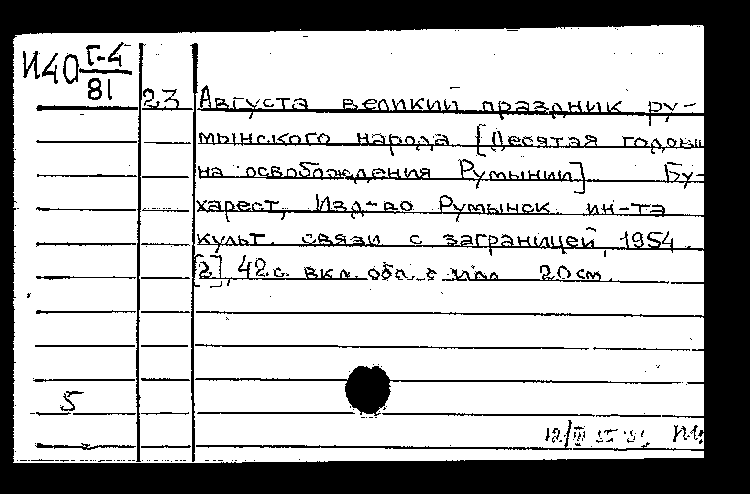 И40 Г-4
81
23 Августа великий праздник ру-
мынского народа [Десятая годовщ
на освобождения Румынии] Бу-
харест, Изд-во Румынск. ин-та
культ. связи с заграницей, 1954.
[2], 42 с. вкл. обл. с илл 20 см.
5
12/III